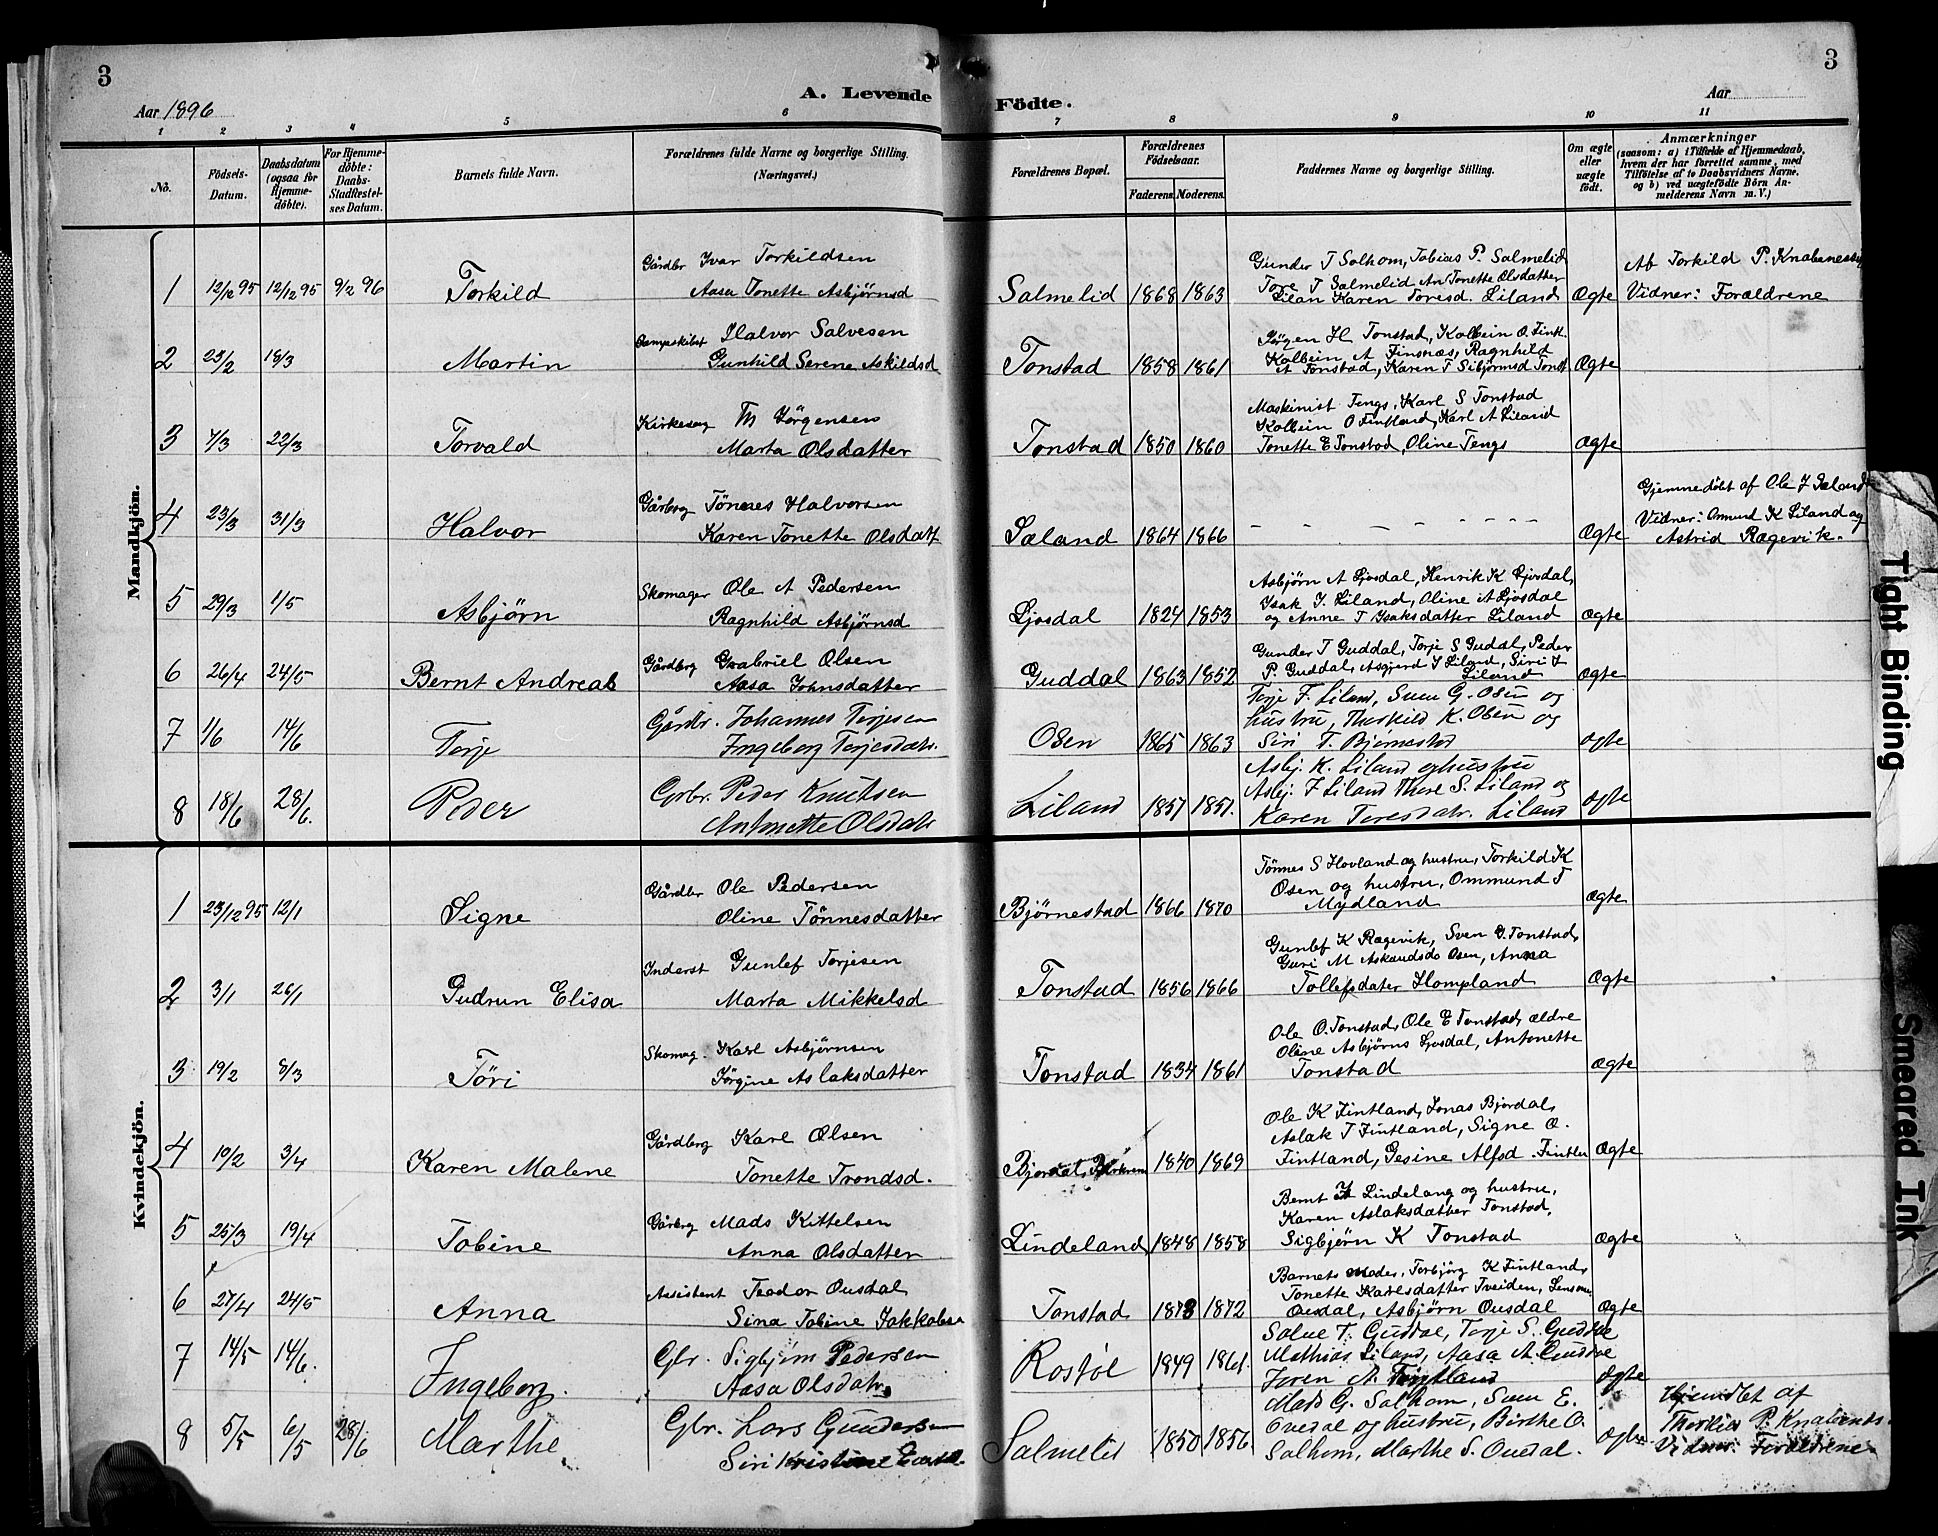 3
3
A. Levende Födte.
Aar 1896
Aar
1 2 3 4 5 6 7 8 9 10 11
No.
Födsels-Datum.
Daabsdatum (ogsaa for Hjemme-döbte).
For Hjemme-döbte: Daabs-Stadfestel-ses Datum.
Barnets fulde Navn.
Forældrenes fulde Navne og borgerlige Stilling. (Næringsvei.)
Forældrenes Bopæl.
Forældrenes Födselsaar.
Faderens. Moderens.
Faddernes Navne og borgerlige Stilling.
Om ægte eller uægte födt.
Anmærkninger
(saasom: a) i Tilfælde af Hjemmedaab, hvem der har forrettet samme, med Tilföielse af to Daabsvidners Navne, og b) ved uægtefödte Börn Anmelderens Navn m. V.)
Mandkjön.
1 12/12 95 12/12 95 9/2 96 Torkild
Gårdbr Ivar Torkildsen
Aasa Tonette Asbjørnsd
Salmelid 1868 1863
Gunder T Solhom, Tobias P. Salmelid
Tore T Salmelid An Tonette Olsdatter
Lilan Karen Toresd. Liland
Ægte
Af Torkild P. Knabenes
Vidner: Forældrene
2 23/2 18/3 Martin
Dampskibst Halvor Salvesen
Gunhild Serene Askildsd
Tonstad 1858 1861
Jørgen H Tonstad, Kolbein O. Fintl.
Kolbein A Finsnæs, Ragnhild
A Tonstad, Karen T Sibjørnsd Tonst
Ægte
3 7/3 22/3 Torvald
Kirkesang Th Jörgensen
Marta Olsdatter
Tonstad 1850 1860
Maskinist Tengs, Karl S Tonstad
Kolbein O Fintland, Karl A Liland
Tonette E Tonstad, Oline Tengs
Ægte
4 23/3 31/3 Halvor
Gårbrg Tönnes Halvorsen
Karen Tonette Olsdatt
Sæland 1864 1866
- - - - - - -
Ægte
Hjemmedöbt af Ole J Sæland
Vidner: Ommund K Liland og
Astrid Rægevik.
5 29/3 1/5 Asbjørn
Skomager Ole A Pedersen
Ragnhild Asbjørnsd
Ljosdal 1824 1853
Asbjørn A Ljosdal, Henrik K Ljosdal,
Isak J. Liland, Oline A Ljosdal
og Anne T Isaksdatter Liland
Ægte
6 26/4 24/5 Bernt Andreas
Gårdbrg Gabriel Olsen
Aasa Johnsdatter
Guddal 1863 1852
Gunder T Guddal, Torje S Gudal, Peder
P. Guddal, Asgjerd J Liland, Siri J
Liland
Ægte
7 1/6 14/6 Terje
Gårdbr. Johannes Terjesen
Ingeborg Terjesdatr.
Osen 1865 1863
Terje F. Liland, Sven G. Osen og
hustru, Thorkild K. Osen og
Siri T. Bjørnestad
ægte
8 18/6 28/6. Peder
Grbr. Peder Knutsen
Antonette Olsdatr
Liland 1857 1851.
Asbj. K. Liland og hustru
Asbj. J Liland Thore S. Liland og
Karen Toresdatr. Liland
ægte
Kvindekjön.
1 23/12 95 12/1 Signe
Gårdbr Ole Pedersen
Oline Tönnesdatter
Bjørnestad 1866 1870
Tönnes S Hovland og hustru, Torkild K
Osen og hustru, Ommund T
Mydland
Ægte
2 3/1 26/1 Gudrun Elisa
Inderst Gunlef Torjesen
Marta Mikkelsd
Tonstad 1856 1866
Gunlef K Rægevik, Sven G. Tonstad,
Guri M Aslaksds Osen, Anna
Tollefsdater Hompland
Ægte
3 19/2 8/3 Töri
Skomag. Karl Asbjørnsen
Jörgine Aslaksdatter
Tonstad 1834 1861
Ole O. Tonstad, Ole E Tonstad, ældre
Oline Asbjørns Ljosdal, Antonette
Tonstad
Ægte
4 19/2 3/4 Karen Malene
Gårdbrg Karl Olsen
Tonette Trondsd.
Bjordal, Birkrem 1840 1869
Ole K Fintland, Jonas Bjordal,
Aslak T Fintland, Signe O.
Fintland, Gesine Alfsd. Fintln
Ægte
5 25/3 19/4 Tobine
Gårbrg Mads Kittelsen
Anna Olsdatter
Lindeland 1848 1858
Bernt K Lindeland og hustru,
Karen Aslaksdatter Tonstad,
Sigbjørn K Tonstad
Ægte
6 27/4 24/5 Anna
Assistent Teodor Ousdal
Sina Tobine Jakkobse
Tonstad 1873 1872
Barnets moder, Torbjørg K Fintland,
Tonette Karlsdatter Tveiden,
Ousdal, Asbjørn Ousdal
Ægte
7 14/5 14/6. Ingeborg.
Gbr. Sigbjörn Pedersen
Aasa Olsdatr.
Rostøl 1849 1861.
Salve T. Guddal, Terje S. Guddal
Mathias Liland, Aasa A. Guddal
Joren A. Fintland
ægte
8 5/5 6/5 28/6 Marthe
Gbr. Lars Gundersen
Siri Kristine
Salmelid 1850 1856
Mads G. Salhom, Sven E.
Ousdal og hustru, Birthe O.
Salhom, Marthe S. Ousdal.
ægte
Hjemdbt af
Thorkild P. Knabenes
Vidner: Forældrene
Tight Binding
Smeared Ink